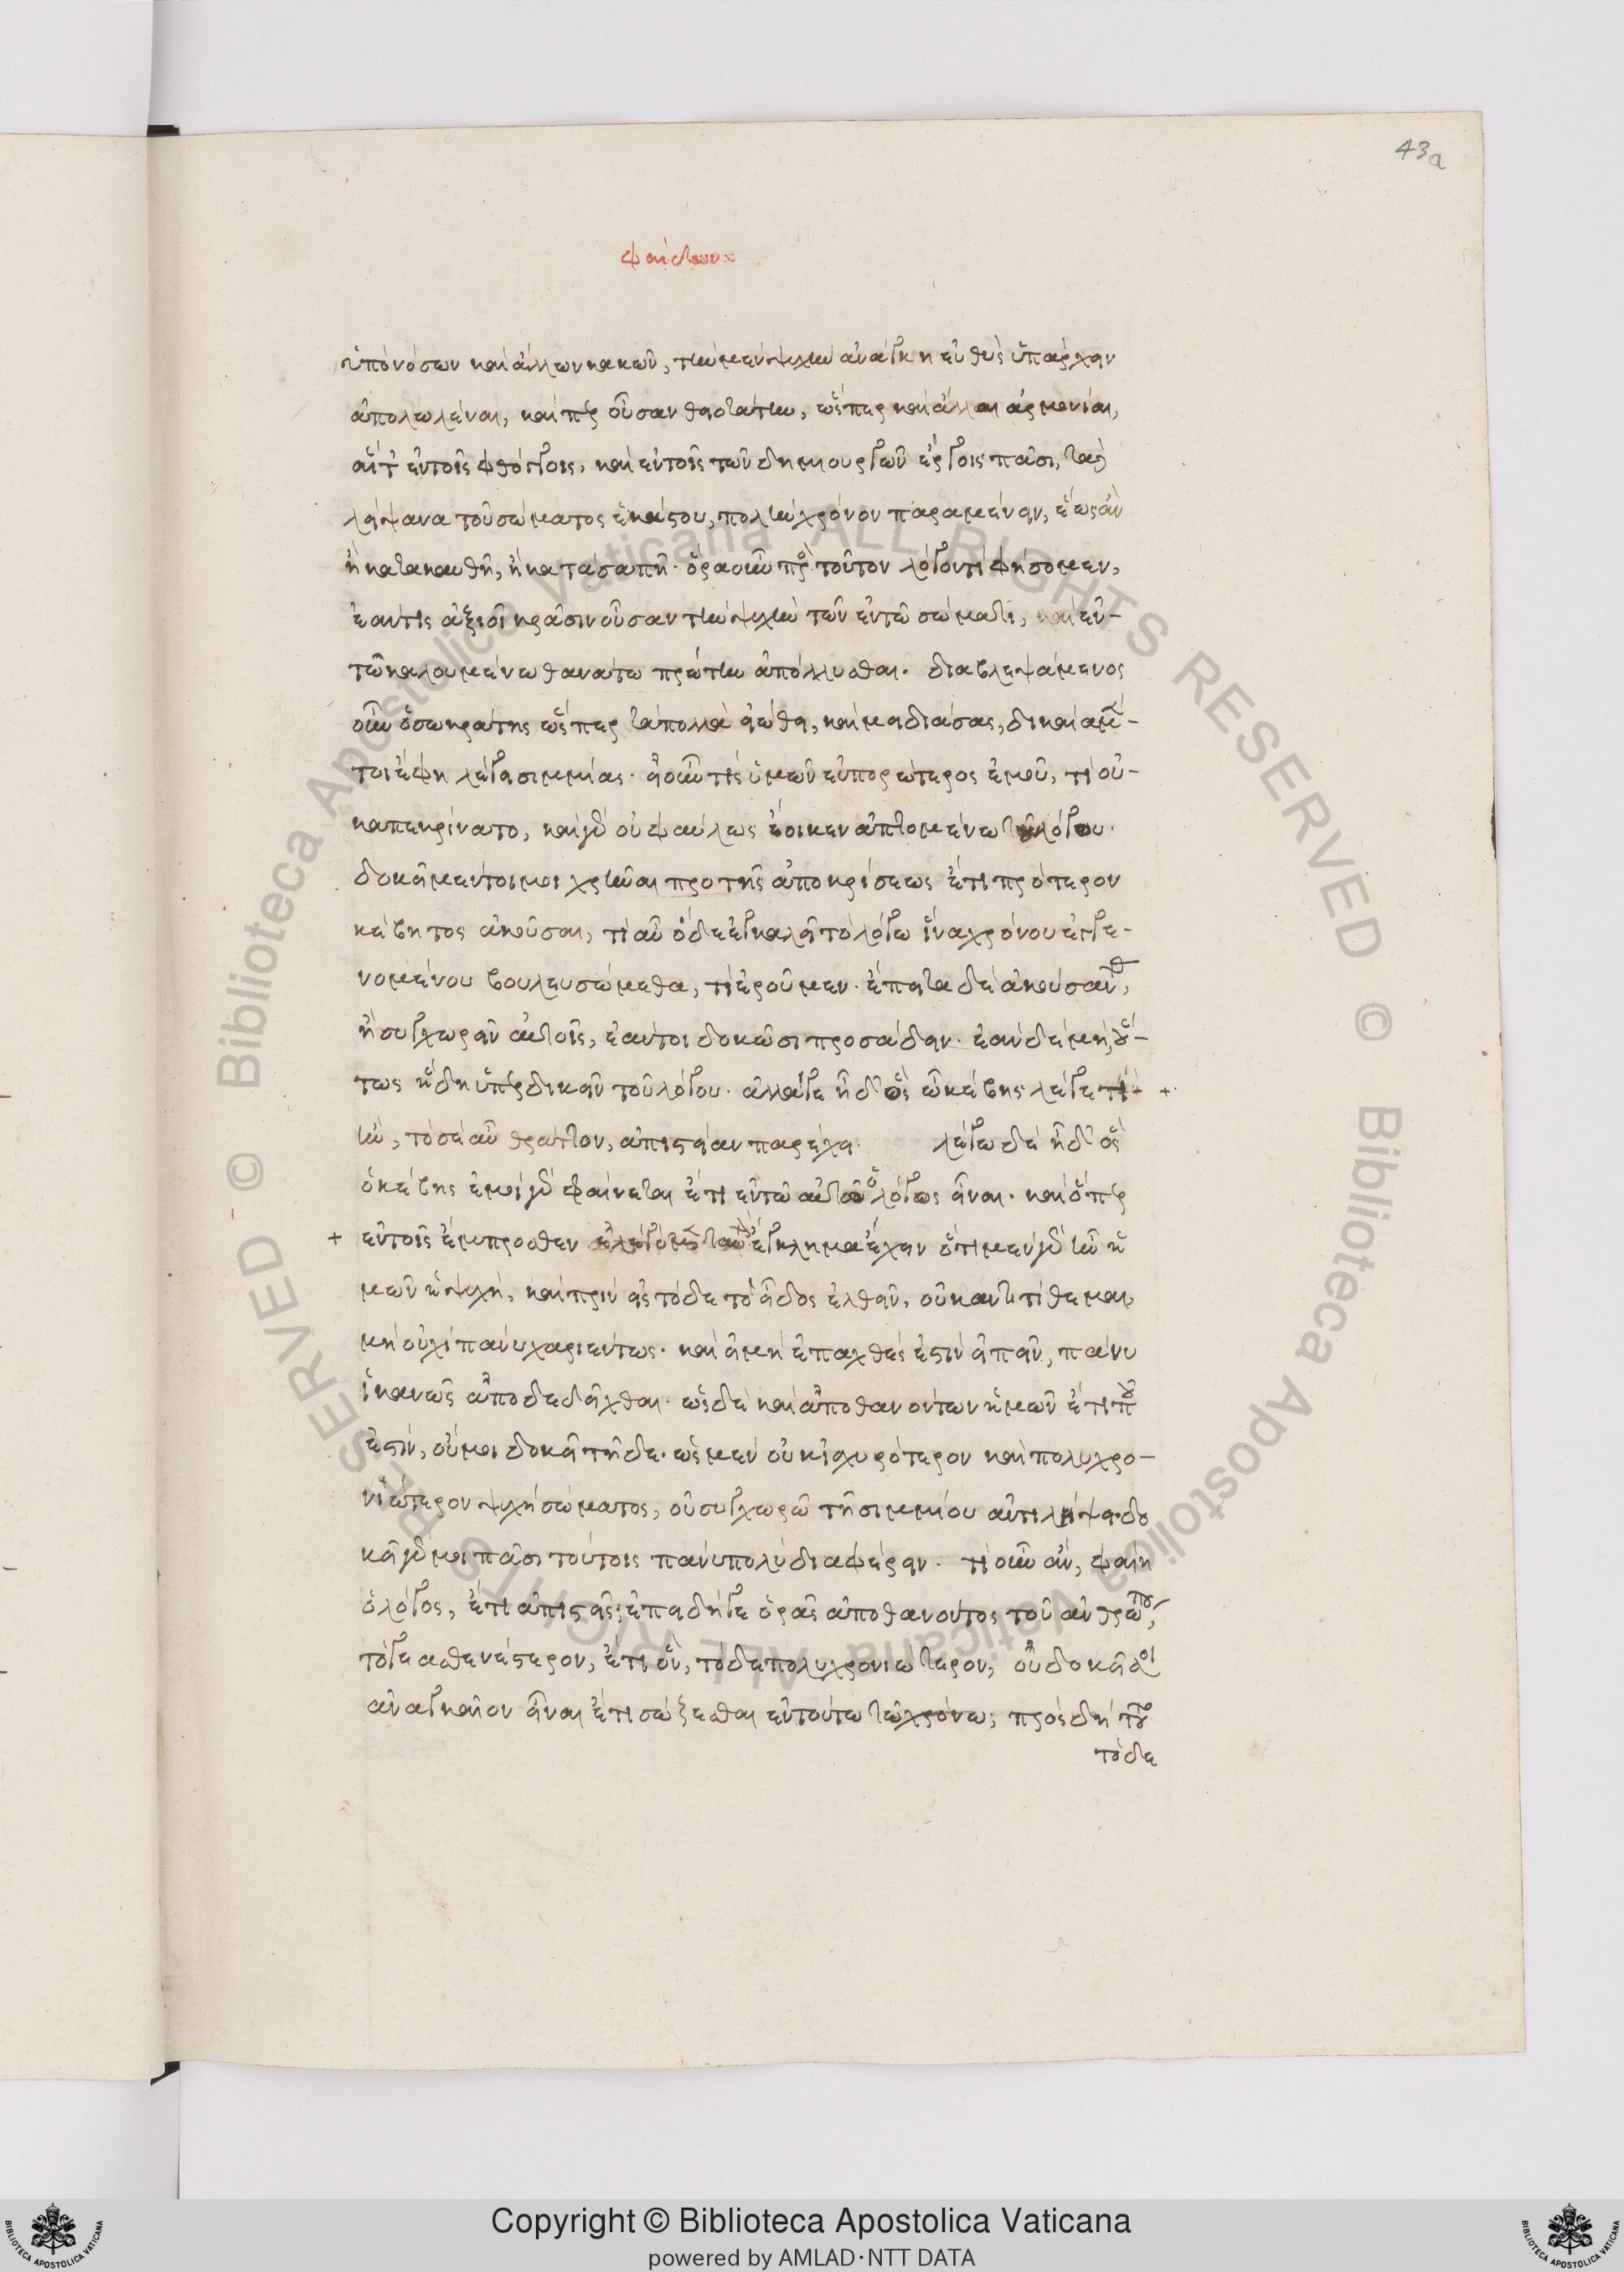 43a
φαίδων
ὑπὸ νόσων καὶ ἄλλων κακῶν, τὴν μὲν ψυχὴν ἀνάγκη εὐθὺς ὑπάρχειν
ἀπολωλέναι, καίπερ οὖσαν θειοτάτην, ὥσπερ καὶ ἄλλαι ἁρμονίαι,
αἵτ' ἐν τοῖς φθόγγοις, καὶ ἐν τοῖς τῶν δημιουργῶν ἔργοις πᾶσι, τὰ δὲ
λείψανα τοῦ σώματος ἑκάστου, πολὺν χρόνον παραμένειν, ἕως ἂν
ἢ κατακαυθῇ, ἢ κατασαπῇ· ὅρα οὖν πρὸς τοῦτον λόγον τί φήσομεν,
ἐάν τις ἀξιοῖ κρᾶσιν οὖσαν τὴν ψυχὴν τῶν ἐν τῷ σώματι, καὶ ἐν
τῷ καλουμένῳ θανάτῳ πρώτην ἀπόλλυσθαι. διαβλεψάμενος
οὖν ὁ σωκράτης ὥσπερ τὰ πολλὰ εἰώθει, καὶ μειδιάσας, δίκαια μέν
τοι ἔφη λέγει σιμμίας· εἰ οὖν τις ὑμῶν εὐπορώτερος ἐμοῦ, τί οὐ
κ ἀπεκρίνατο, καὶ γὰρ οὐ φαύλως ἔοικεν ἁπτομένῳ τοῦ λόγου.
δοκεῖ μέντοι μοι χρῆναι πρὸ τῆς ἀποκρίσεως ἔτι πρότερον
κέβητος ἀκοῦσαι, τί αὖ ὅδε ἐγκαλεῖ τῷ λόγῳ ἵνα χρόνου ἐγγε-
νομένου βουλευσώμεθα, τί ἐροῦμεν· ἔπειτα δὲ ἀκούσαντας,
ἢ συγχωρεῖν αὐτοῖς, ἐάν τοι δοκῶσι προσάδειν· ἐὰν δὲ μή, οὕ-
τως ἤδη ὑπερδικεῖν τοῦ λόγου. ἀλλ' ἄγε ἦ δ' ὃς ὦ κέβης λέγε τί +
ἦν, τὸ σὲ αὖ θρᾶττον, ἀπιστίαν παρέχει. λέγω δὴ ἦ δ' ὃς
ὁ κέβης ἐμοὶ γὰρ φαίνεται ἔτι ἐν τῷ αὐτῷ ὁ λόγος εἶναι· καὶ ὅπερ
+ ἐν τοῖς ἔμπροσθεν ἐλέγομεν ταὐτὸν ἔγκλημα ἔχειν ὅτι μὲν γὰρ ἦν ἡ
μῶν ἡ ψυχή, καὶ πρὶν εἰς τόδε τὸ εἶδος ἐλθεῖν, οὐκ ἀντιτίθεμαι,
μὴ οὐχὶ πάνυ χαριέντως· καὶ εἰ μὴ ἐπαχθές ἐστιν εἰπεῖν, πάνυ
ἱκανῶς ἀποδεδεῖχθαι· ὡς δὲ καὶ ἀποθανόντων ἡμῶν ἔτι που
ἐστίν, οὔ μοι δοκεῖ τῇδε· ὡς μὲν οὐκ ἰσχυρότερον καὶ πολυχρο-
νιώτερον ψυχὴ σώματος, οὐ συγχωρῶ τῇ σιμμίου ἀντιλήψει· δο
κεῖ γάρ μοι πᾶσι τούτοις πάνυ πολὺ διαφέρειν. τί οὖν ἄν, φαίη
ὁ λόγος, ἔτι ἀπιστεῖς; ἐπειδή γε ὁρᾷς ἀποθανόντος τοῦ ἀνθρώπου,
τό γε ἀσθενέστερον, ἔτι ὄν, τὸ δὲ πολυχρονιώτερον, οὐ δοκεῖ σοι
ἀναγκαῖον εἶναι ἔτι σώζεσθαι ἐν τούτῳ τῷ χρόνῳ; πρὸς δὴ τοῦ
τόδε